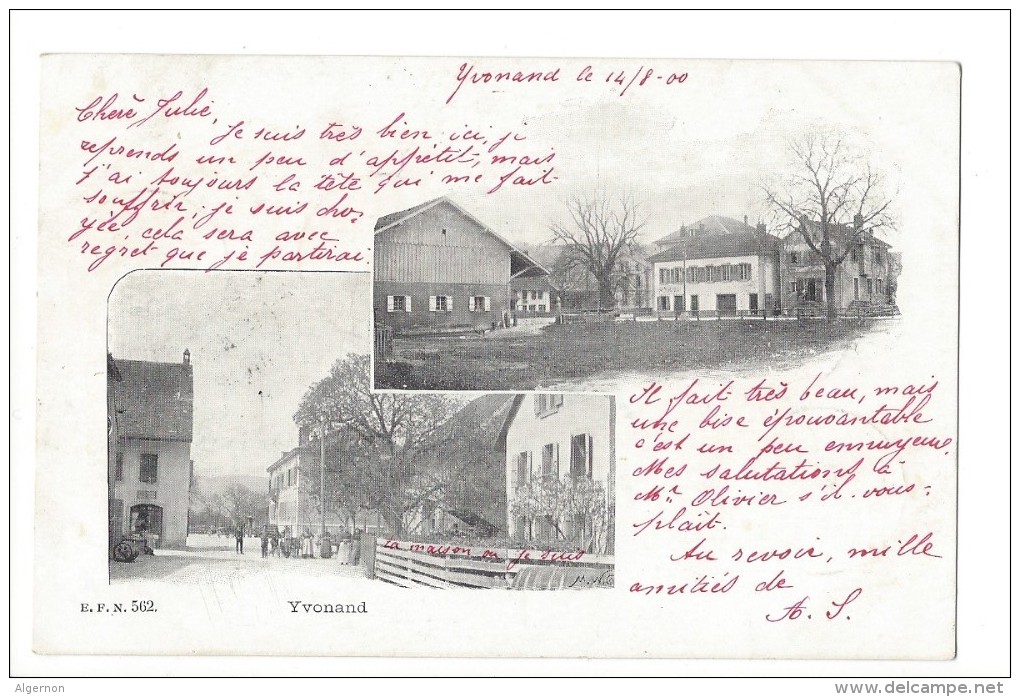 Yvonand le 14/8-00
Cherè Julie,
Je suis très bien ici, je
reprends un peu d'appétit, mais
j'ai toujours la tête qui me fait
souffrir, je suis cho-
yée, cela sera avec
regret que je partirai.
Il fait très beau, mais
une bise épouvantable
c'est un peu ennuyeux.
Mes salutations à
Mr. Olivier s'il vous-
plaît.
Au revoir, mille
amitiés de
A. S.
La maison ou je suis
E. F. N. 562.
Yvonand
Algernon
delcampe.net